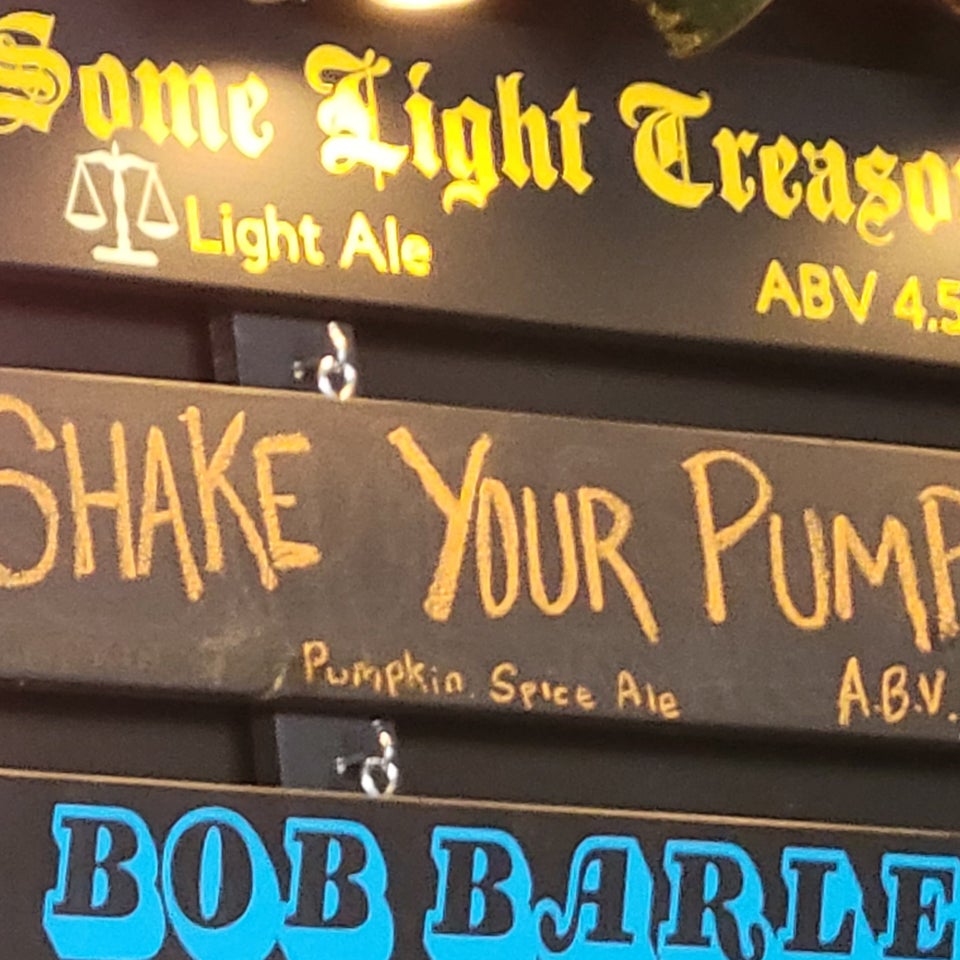 Some Light Treaso
Light Ale
ABV 4.5
SHAKE YOUR PUMP
Pumpkin Spice Ale
A.B.V.
BOB BARLE